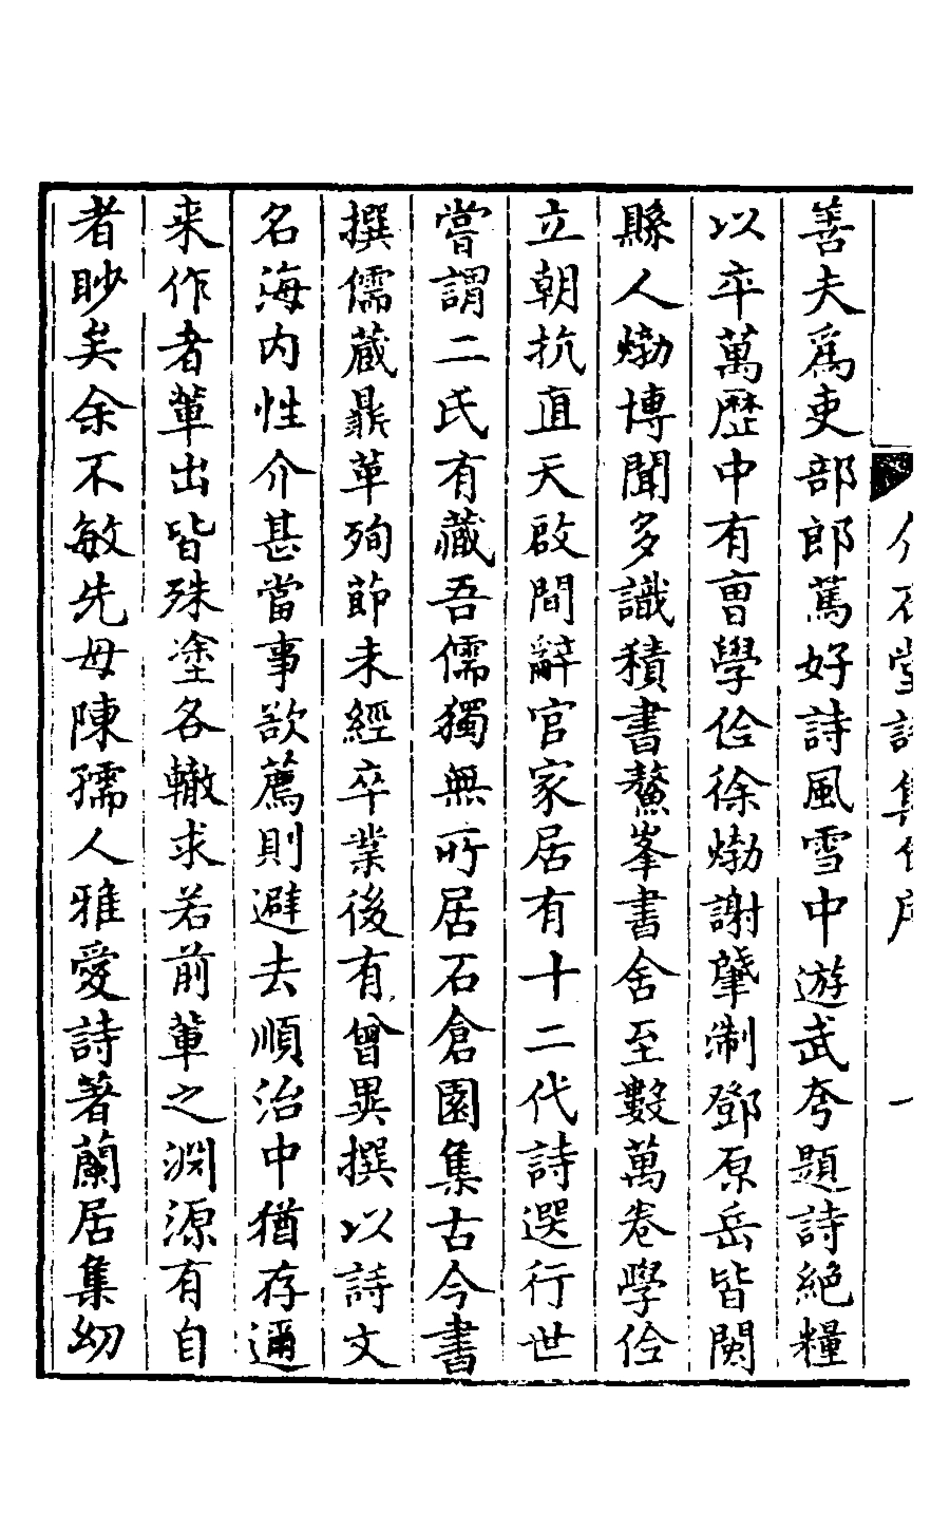 善夫爲吏部郎篤好詩風雪中遊武夸題詩絕糧
以卒萬歷中有曺學佺徐𤊹謝肇淛鄧原岳皆閩
縣人𤊹博聞多識積書鰲峯書舍至數萬卷學佺
立朝抗直天啟間辭官家居有十二代詩選行世
嘗謂二氏有藏吾儒獨無所居石倉園集古今書
撰儒蔵鼎革殉節未經卒業後有曾異撰以詩文
名海内性介甚當事欲薦則避去順治中猶存邇
来作者軰出皆殊塗各轍求若前軰之淵源有自
者眇矣余不敏先母陳孺人雅愛詩著蘭居集幼